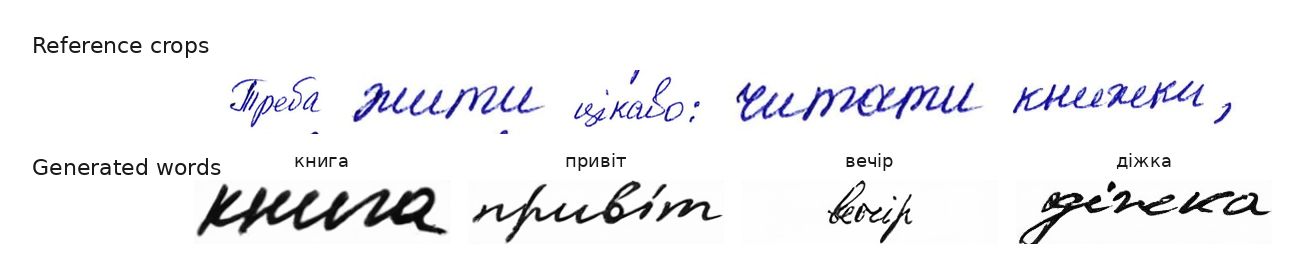 Reference crops
Треба жити цікаво: читати книжки,
Generated words
книга привіт вечір діжка
книга привіт вечір діжка